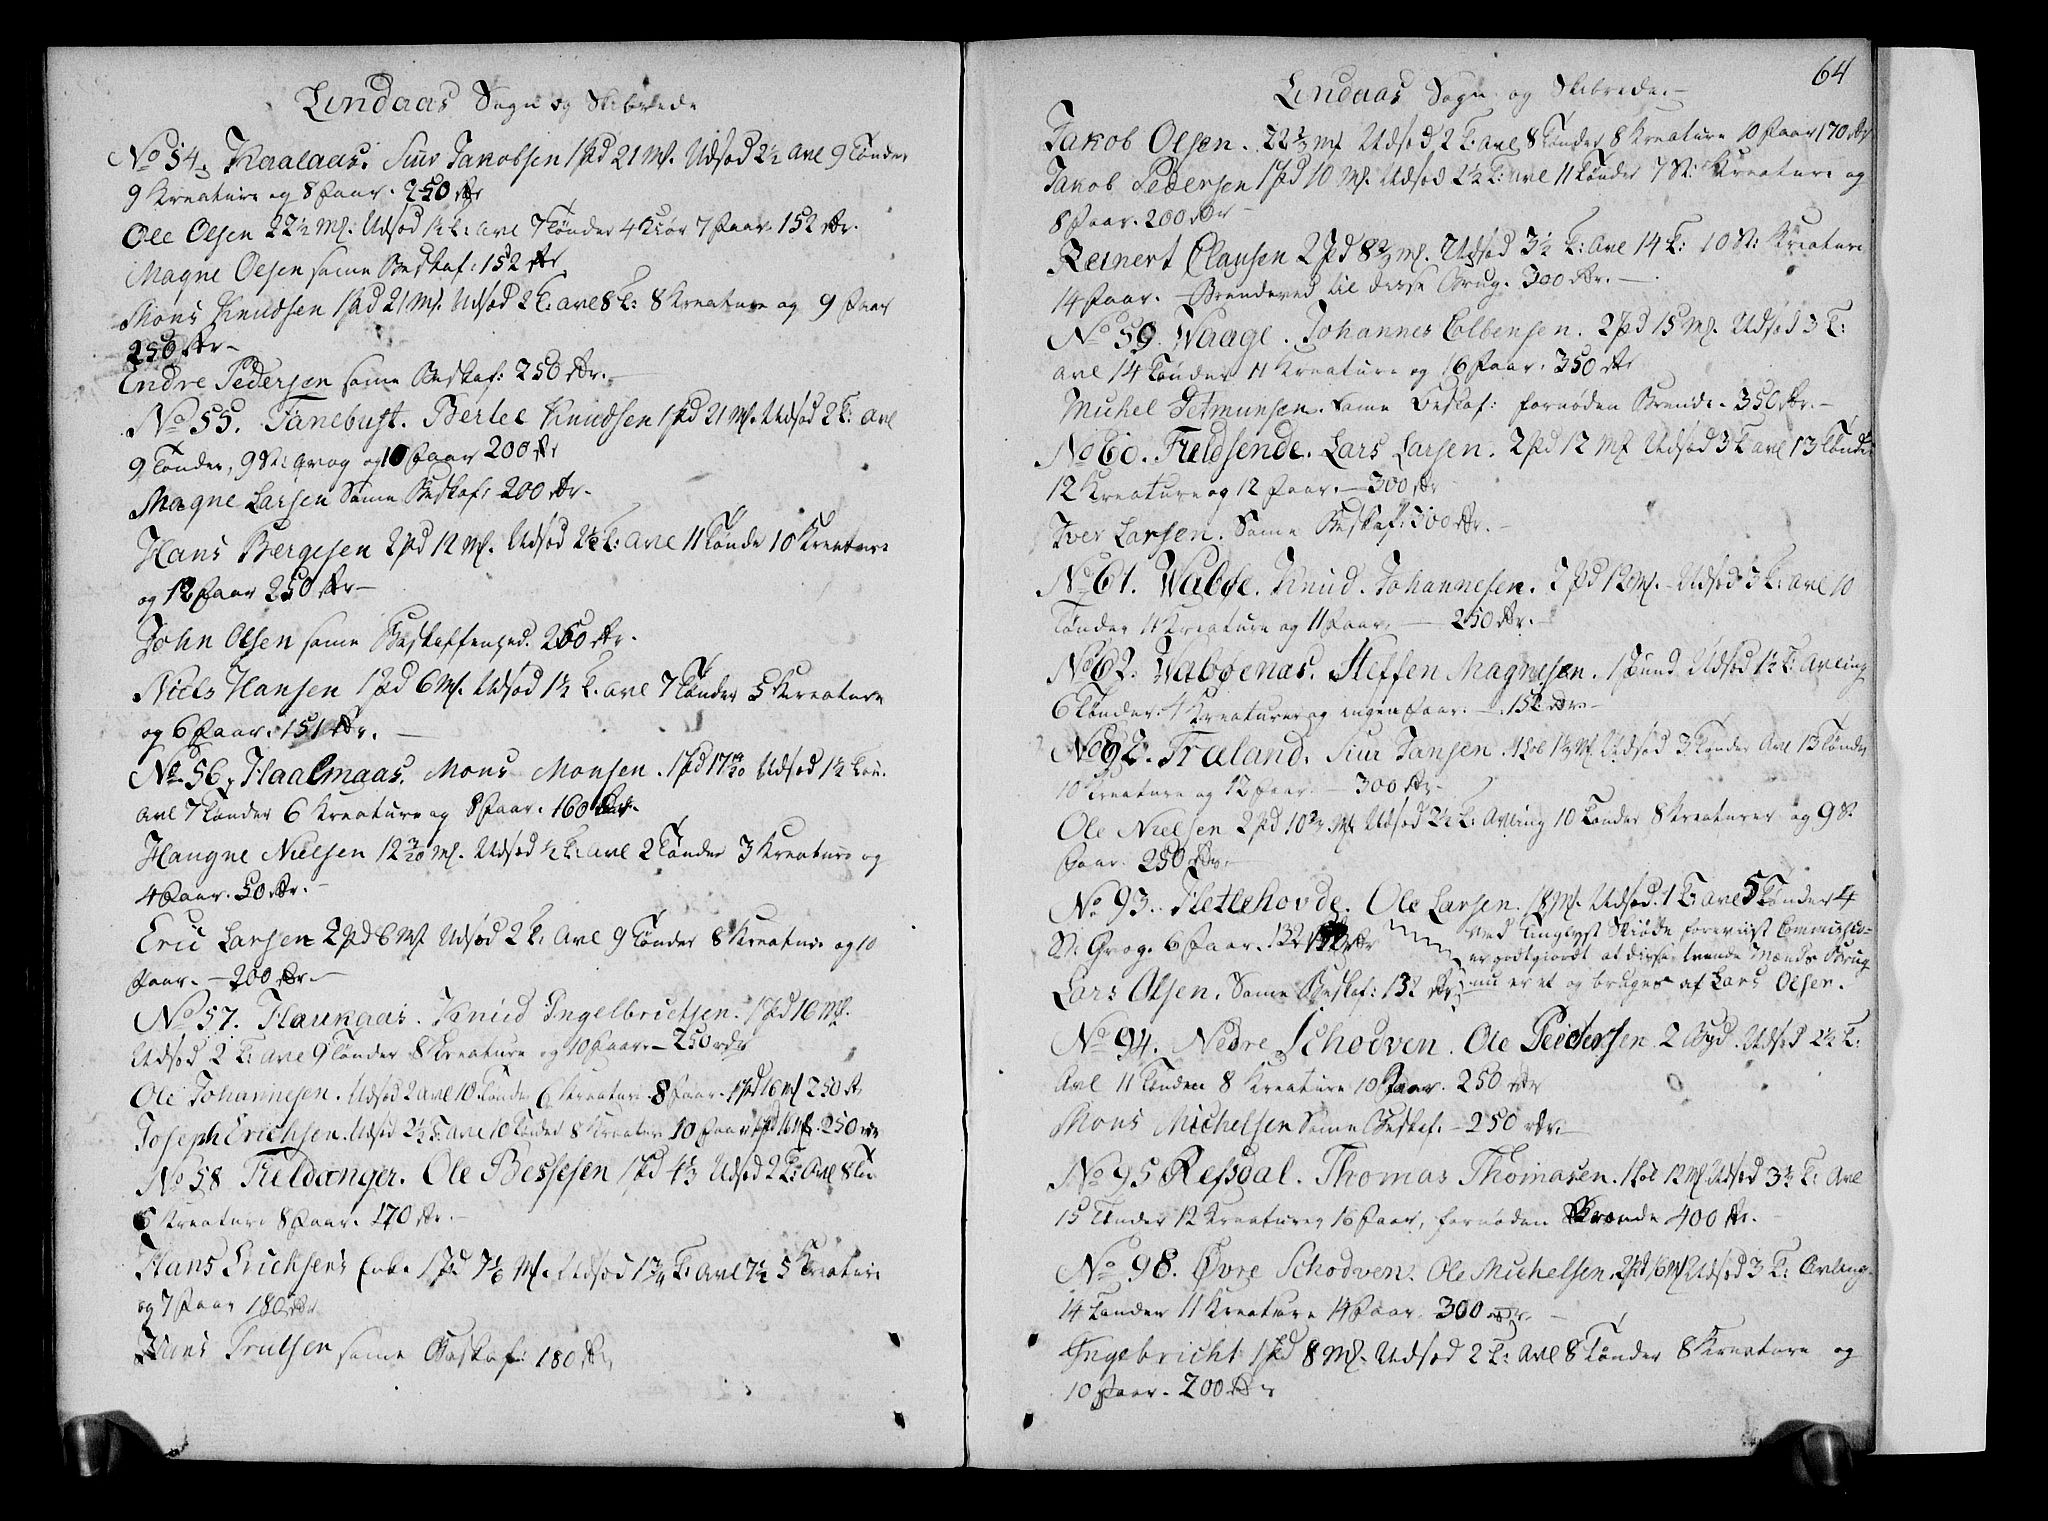 Lindaas Sogn og Skibrede
No 54. Kaalaas. Siur Jakobsen 1 Pd 21 Mk. Udsød 2½ avl 9 Tønder
9 Kreature og 8 Faar. 250 Rdr
Ole Olsen 22½ Mk: Udsød 1½ T: avl 7 Tønder 4 Kiør 7 Faar 152 Rdr.
Magne Olsen same Beskaf: 152 Rdr
Mons Knudsen 1 Pd 21 Mk. Udsød 2 T: avl 8 T: 8 Kreature og 9 Faar
250 Rdr –
Endre Pedersen same Beskaf: 250 Rdr. –
No 55. Fanebust. Bertel Knudsen 1 Pd 21 Mk. Udsød 2 T: avl
9 Tønder, 9 St: qvæg og 10 Faar 200 Rdr
Magne Larsen Same Beskaf: 200 Rdr. –
Hans Børgesen 2 Pd 12 Mk. Udsød 2½ T: avl 11 Tønde 10 Kreature
og 12 Faar 250 Rdr –
John Olsen same Beskaffenhed. 250 Rdr.
Niels Hansen 1 Pd 6 Mk. Udsød 1½ T. avl 7 Tønder 5 Kreature
og 6 Faar. 151 Rdr. –
No 56. Haalmaas. Mons Monsen. 1 Pd 17 Udsød 1½ Tøn.
avl 7 Tønder 6 Kreature og 8 Faar. 160 Rdr.
Haugne Nielsen 12 Mk. Udsød ½ T: avl 2 Tønder 3 Kreature og
4 Faar. 50 Rdr. –
Eric Larsen 2 Pd 6 Mk Udsød 2 T: avl 9 Tønder 8 Kreature og 10
Faar. – 200 Rdr. –
No 57. Haukaas. Knud Ingelbrictsen. 1 Pd 16 Mk.
Udsød 2 T: avl 9 Tønder 8 Creature og 10 Faar – 250 rdr
Ole Johannesen. Udsød 2 avl 10 Tønder 6 Kreature 8 Faar. 1 Pd 16 Mk 250 Rdr
Joseph Erichsen. Udsød 2½ T. avl 10 Tønder 8 Kreature 10 Faar 1 Pd 16 Mk. 250 rdr
No 58 Fieldanger. Ole Bessesen 1 Pd 4½ Udsød 2 T: avl 8 Tø
6 Kreature 8 Faar. 170 Rdr. –
Hans Erichsens Enke 1 Pd 7 Mk. Udsød 1¾ T: avl 7½ 5 Kreature
og 7 Faar 180 Rdr
Trulsen same Beskaf: 180 Rdr,
64
Lindaas Sogn og Skibrede. –
Jakob Olsen. 22 Mk Udsød 2 T. avl 8 Tønder 8 Kreature 10 Faar 170 Rdr
Jakob Pedersen 1 Pd 10 Mk. Udsød 2½ T: avl 11 Tønder 7 St: Kreature og
8 Faar. 200 Rdr –
Reinert Clausen 2 Pd 8 Mk. Udsød 3½ T: avl 14 T: 10 St: Kreature
14 Faar. – Brendeved til deres Brug. 300 Rdr. –
No 59. Waage. Johannes Colbensen. 2 Pd 15 Mk. Udsød 3 T:
avl 14 Tønder 11 Kreature og 16 Faar. 350 Rdr
Michel Setmunsen. Same Beskaf: fornøden Brende. 350 Rdr. –
No 60. Fieldsende. Lars Larsen. 2 Pd 12 Mk Udsød 3 T avl 13 Tønde
12 Kreature og 12 Faar. – 300 Rdr
Iver Larsen. Same Beskaf: 300 Rdr. –
No 61. Wabøe. Knud Johannesen. 2 Pd 12 Mk. – Udsød 3 T: avl 10
Tønder 11 Kreature og 11 Faar. – 250 Rdr. –
No 62. Wabøenæs. Steffen Magnesen. 1 Pund Udsød 1½ T: Avling
6 Tønder. 4 Kreaturer og ingen Faar. – 152 Rdr –
No 92. Fræland. Siur Jansen. 1 Løb Mk Udsød 3 Tønder Avl 13 Tønder
10 Kreature og 12 Faar. – 300 Rdr. –
Ole Nielsen 2 Pd 10 Mk Udsød 2½ T: Avling 10 Tønder 8 Kreaturer og 9 St
Faar. 250 Rdr. –
No 93. Hetlehovde. Ole Larsen. 18 Mk. Udsød. 1 T: avl 5 Tønder 4
St: Qvæg. 6 Faar. 132 Rdr
Ved tinglyst Skiøde foreviist Commissio-
er godtgiordt at disse tvende Mænds Brug
Lars Olsen. Same Beskaf: 132 Rdr. nu er et og bruges af Lars Olsen.
No 94. Nedre Schodven. Ole Peidersen 2 Pd. Udsød 2½ T:
Avl 11 Tønder 8 Kreature 10 Faar. 250 Rdr
Mons Michelsen Same Beskaf. – 250 rdr. –
No 95 Refsdal. Thomas Thomasen. 1 Løb 12 Mk. Udsød 3½ T: Avl
15 Tønder 12 Kreaturer 16 Faar, fornøden Brende 400 Rdr. –
No 98. Øvre Schodven. Ole Michelsen. 2 Pd 16 Mk Udsød 3 T: Avling
14 Tønder 11 Kreature 14 Faar. 300 Rdr. –
Ingebricht 1 Pd 8 Mk. Udsød 2 T: Avl 8 Tønder 8 Kreature og
10 Faar. 200 Rdr